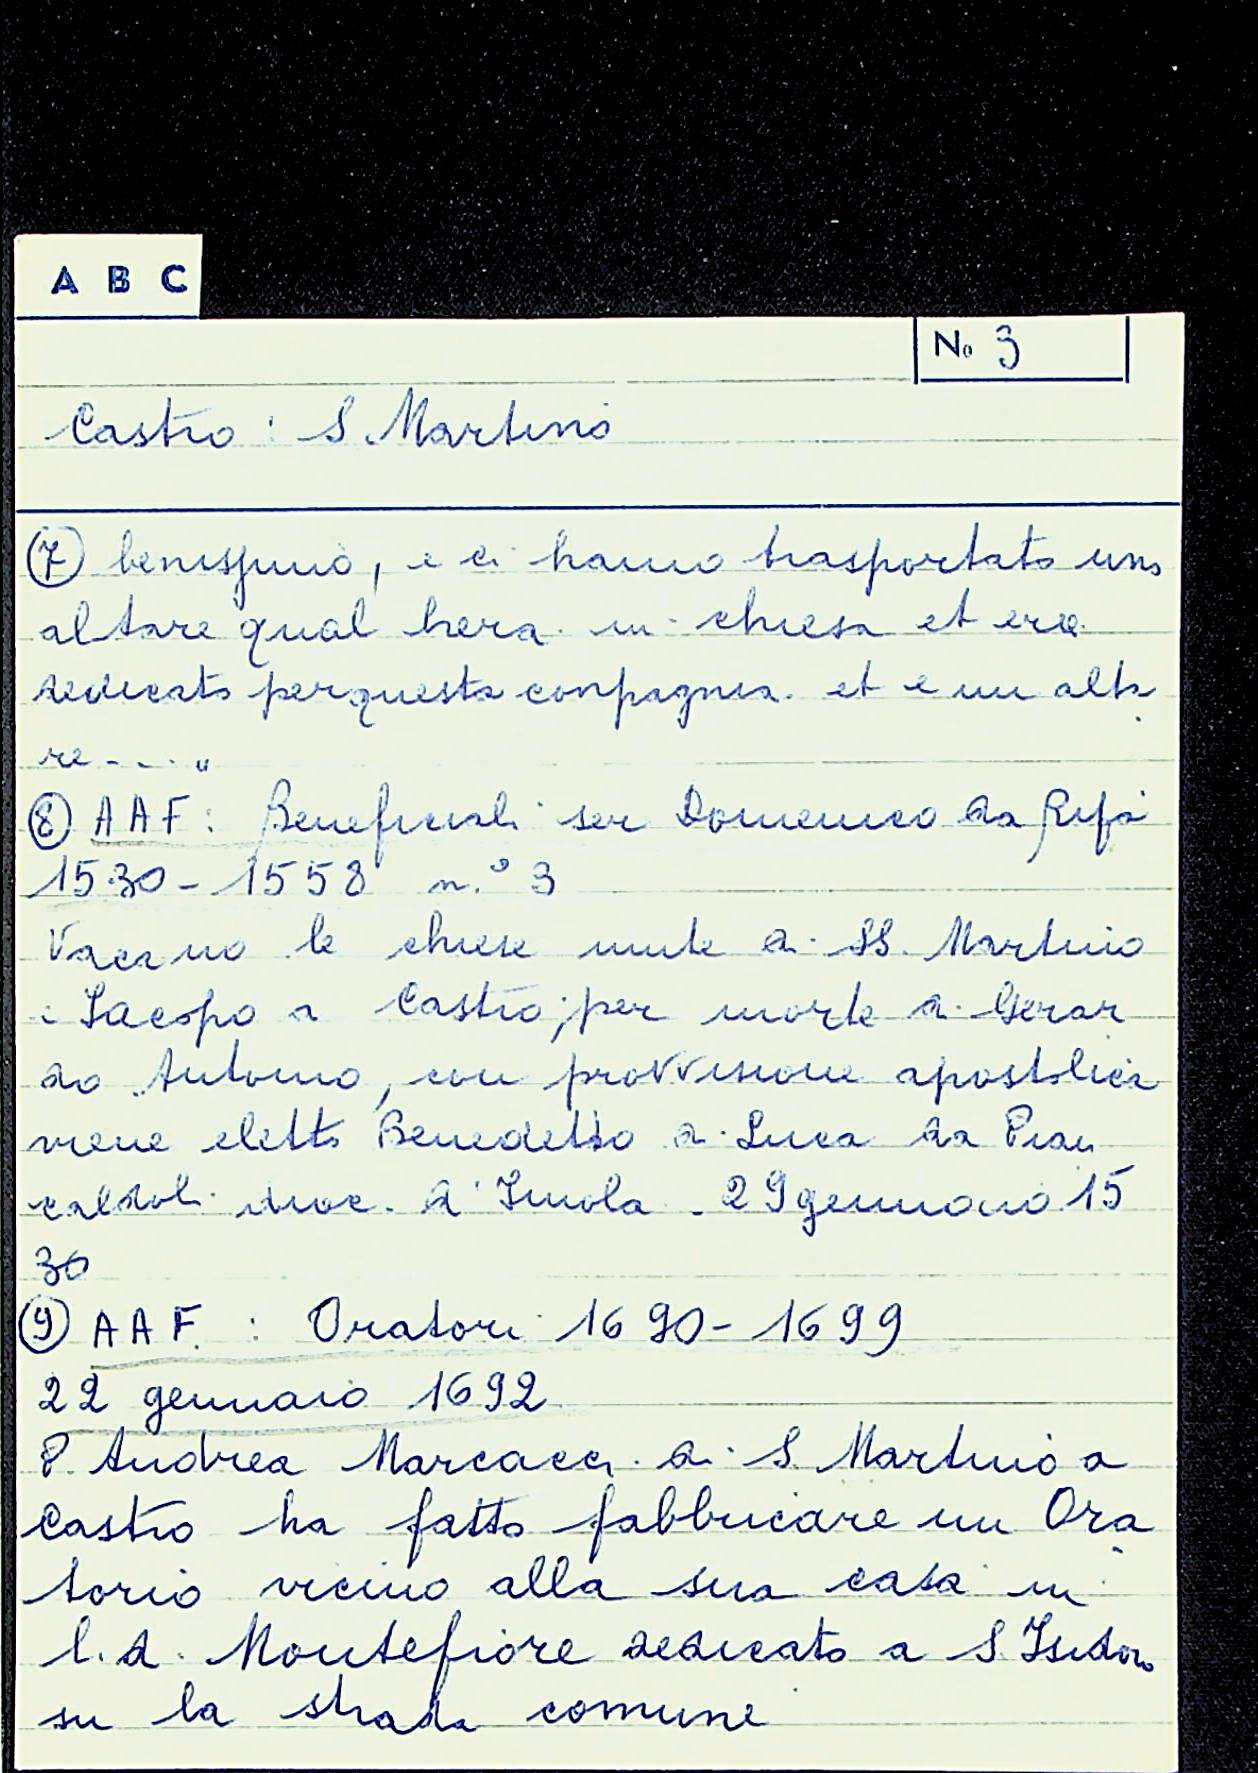 A B C
No 3
Castro : S. Martino
(7) benissimo, e ci hanno trasportato uno
altare qual hera in chiesa et era
dedicato per questa conpagnia. et e un alta
re - - . "
(8) AAF : Beneficiali ser Domenico da
1530 - 1558 n.° 3
Vacano le chiese unite di SS. Martino
e Iacopo a Castro, per morte di Gerar
do Antonio, con provvisione apostolica
viene eletto Benedetto di Luca da Pian
caldoli dioc. d'Imola . 29 gennaio 15
30
(9) AAF : Oratori 1690 - 1699
22 gennaio 1692
P. Andrea Marcacci di S. Martino a
Castro ha fatto fabbricare un Ora
torio vicino alla sua casa in
l.d. Montefiore dedicato a S. Isidoro
su la strada comune